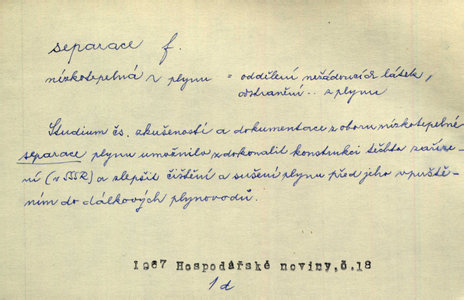 separace f.
nízkotepelná ~ plynu = oddělení nežádoucích látek,
odstranění .. z plynu
Studium čs. zkušeností a dokumentace z oboru nízkotepelné
separace plynu umožnilo zdokonalit konstrukci těchto zaříze-
ní (v SSSR) a zlepšit čištění a sušení plynu před jeho vpuště-
ním do dálkových plynovodů.
1967 Hospodářské noviny,č.18
1d